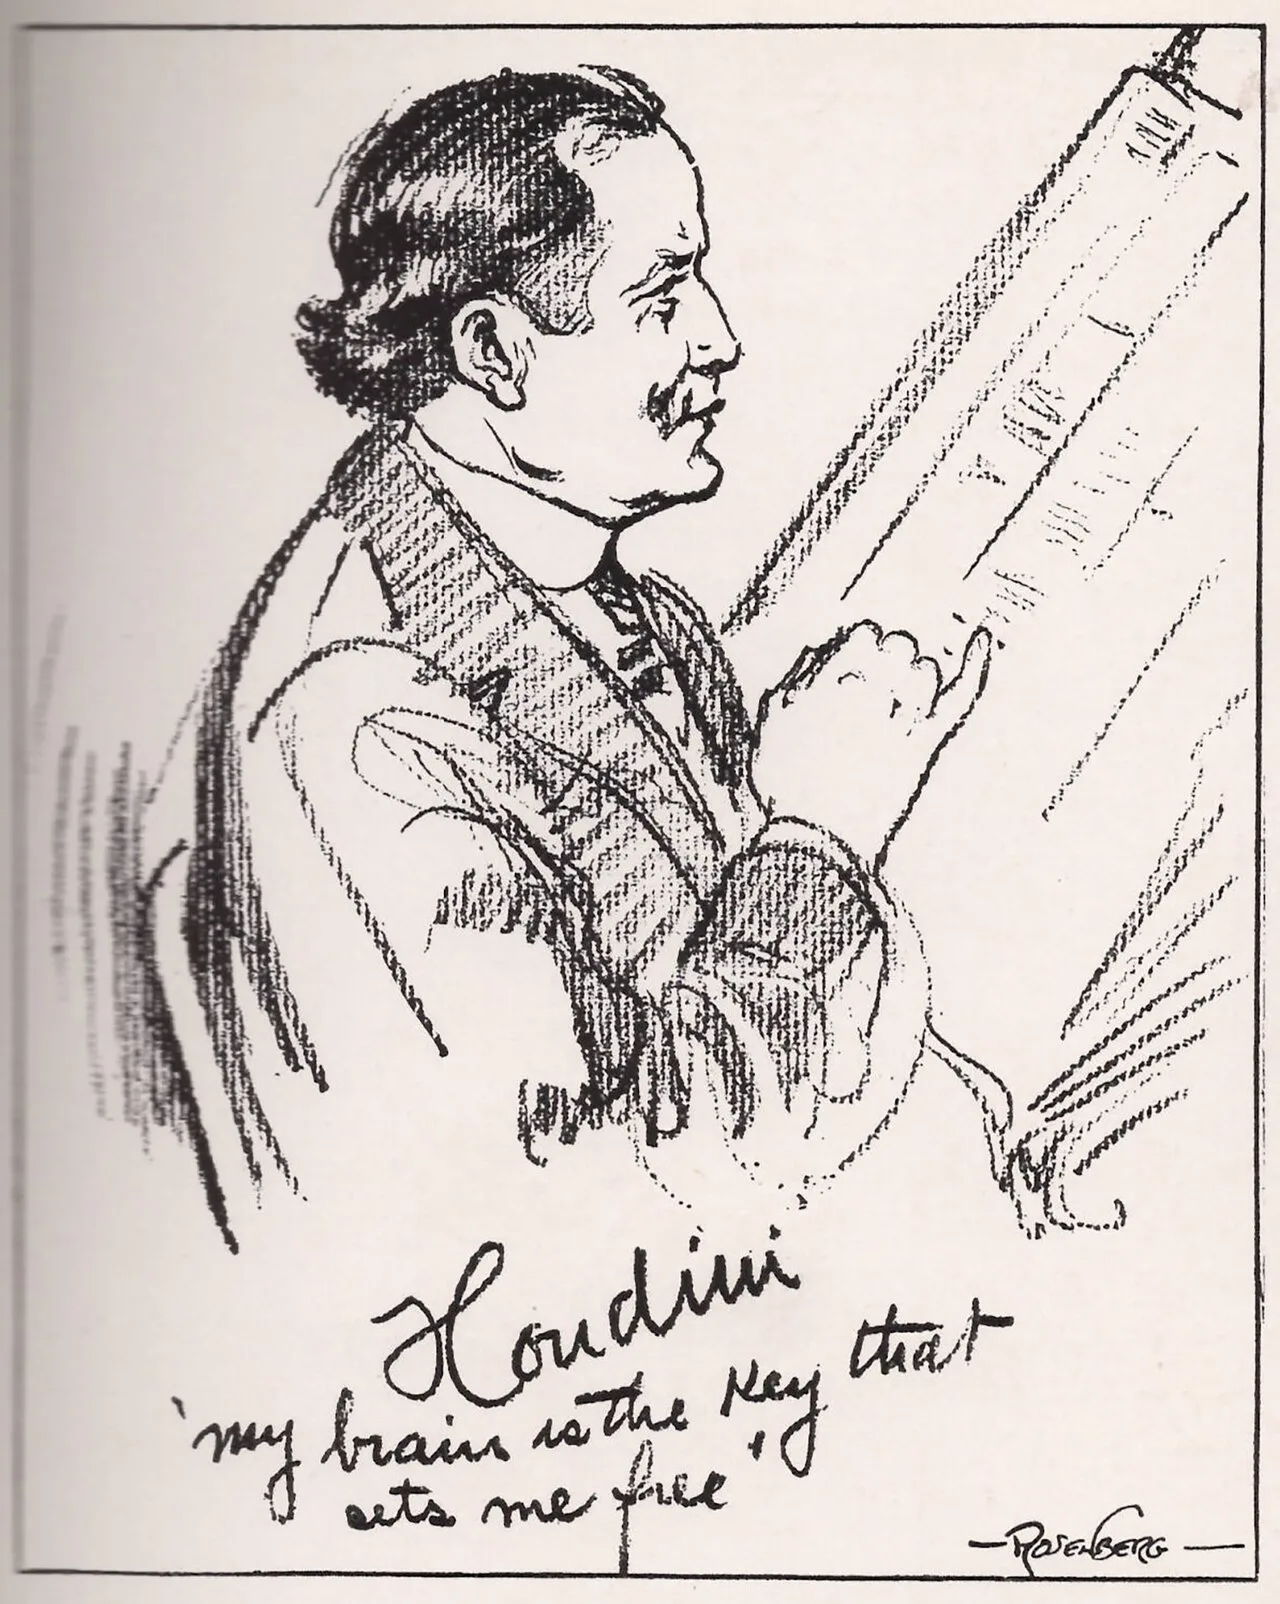 Houdini
'my brain is the key that
sets me free'
—ROSENBERG—